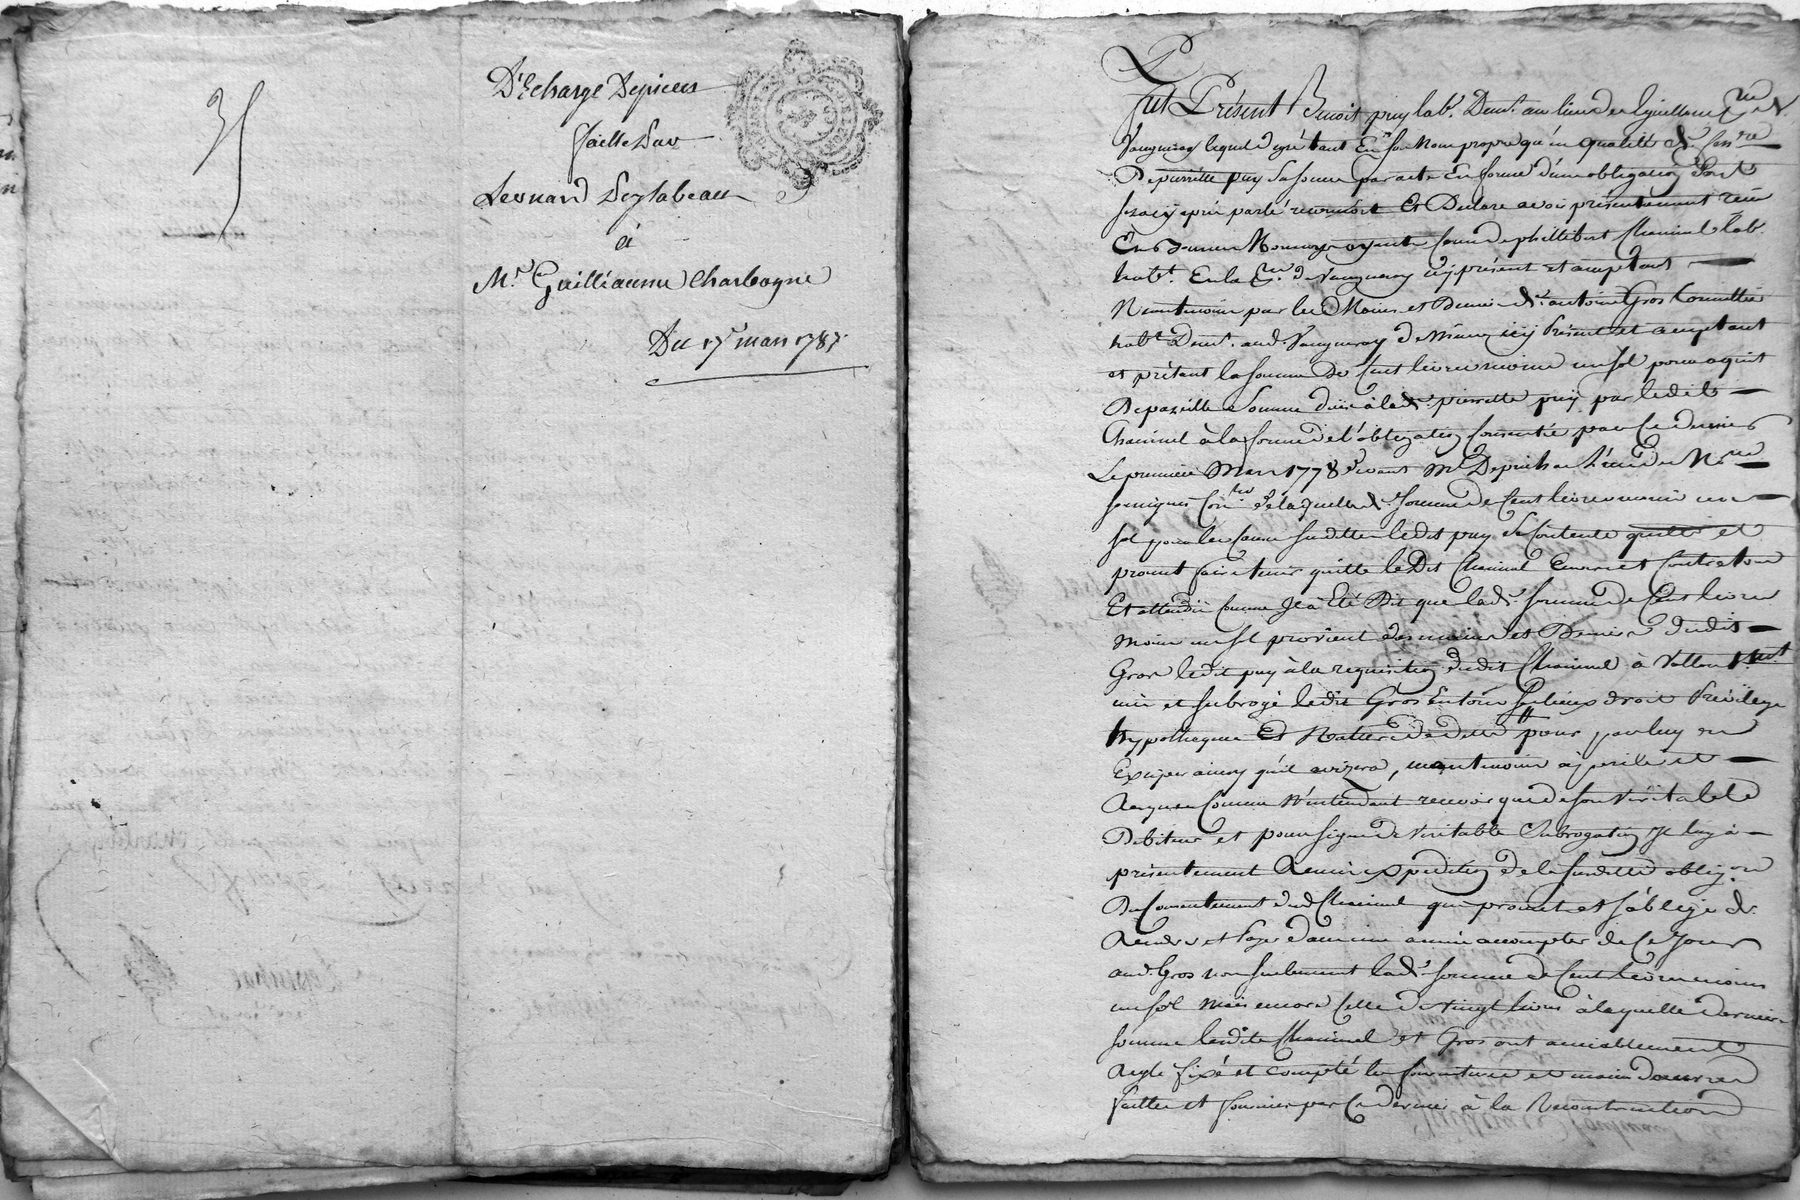 35
D'Echarge Depieces
faitte Par
Leonard Peylabeau
à
Mr. Guilliaume Charbogne
Du 15 mars 1787
fut Présent Benoit puy lab. Demt. au lieu de
Vaugneray lequel étant En son Nom propre qu'en qualité de
De pierrette puy Sa soeur par acte En forme d'une obligation dont
sera cy après parlé Et Declare avoir présentement reçu
En de philibert Chainel lab.
habt. En la de Vaugneray icy présent et acceptant
Neantmoins par les Mains et Deniers de Sr. antoine Gros
habt. Demt. aud. Vaugneray de même icy Présent et acceptant
et prêtant la somme De Cent livres moins un sol pour acquit
De pareille Somme düe à lad. pierrette puy par ledit
Chainel à la forme de l'obligation Consentie par Ce dernier
Le premier Mars 1778 devant Me
soussignés de laquelle d. Somme de Cent livres moins un
sol pour les Causes susdittes ledit puy Se Contente quitte et
promet faire tenir quitte le Dit Chainel Envers et Contre tous
Et attendu Comme Il à Eté Dit que lad. somme de Cent livres
moins un sol provient des mains et Deniers dudit
Gros ledit puy à la requisition dudit Chainel à
mis et subrogé ledit Gros En tous ses lieux droit Privilege
hypotheque Et Nature de dette pour par luy en
Exiger ainsy qu'il avizera, neantmoins à perils et
risques Comme N'entendant recevoir que de son véritable
Debiteur et pour signe De Veritable Subrogation Il luy à
présentement Remis expedition de la susditte oblig.on
Du Consentement dud. Chainel qui promet et s'oblige de
Rendre et Payer dans une année à compter de Ce Jour
aud. Gros non seulement lad. somme de Cent Livres moins
un sol Mais encore Celle de vingt livres à laquelle derniere
somme lesdits Chainel et Gros ont amiablement
Reglé fixé et compté les fournitures et mains d'oeuvres
faittes et fournies par Ce dernier à la Reconstruction